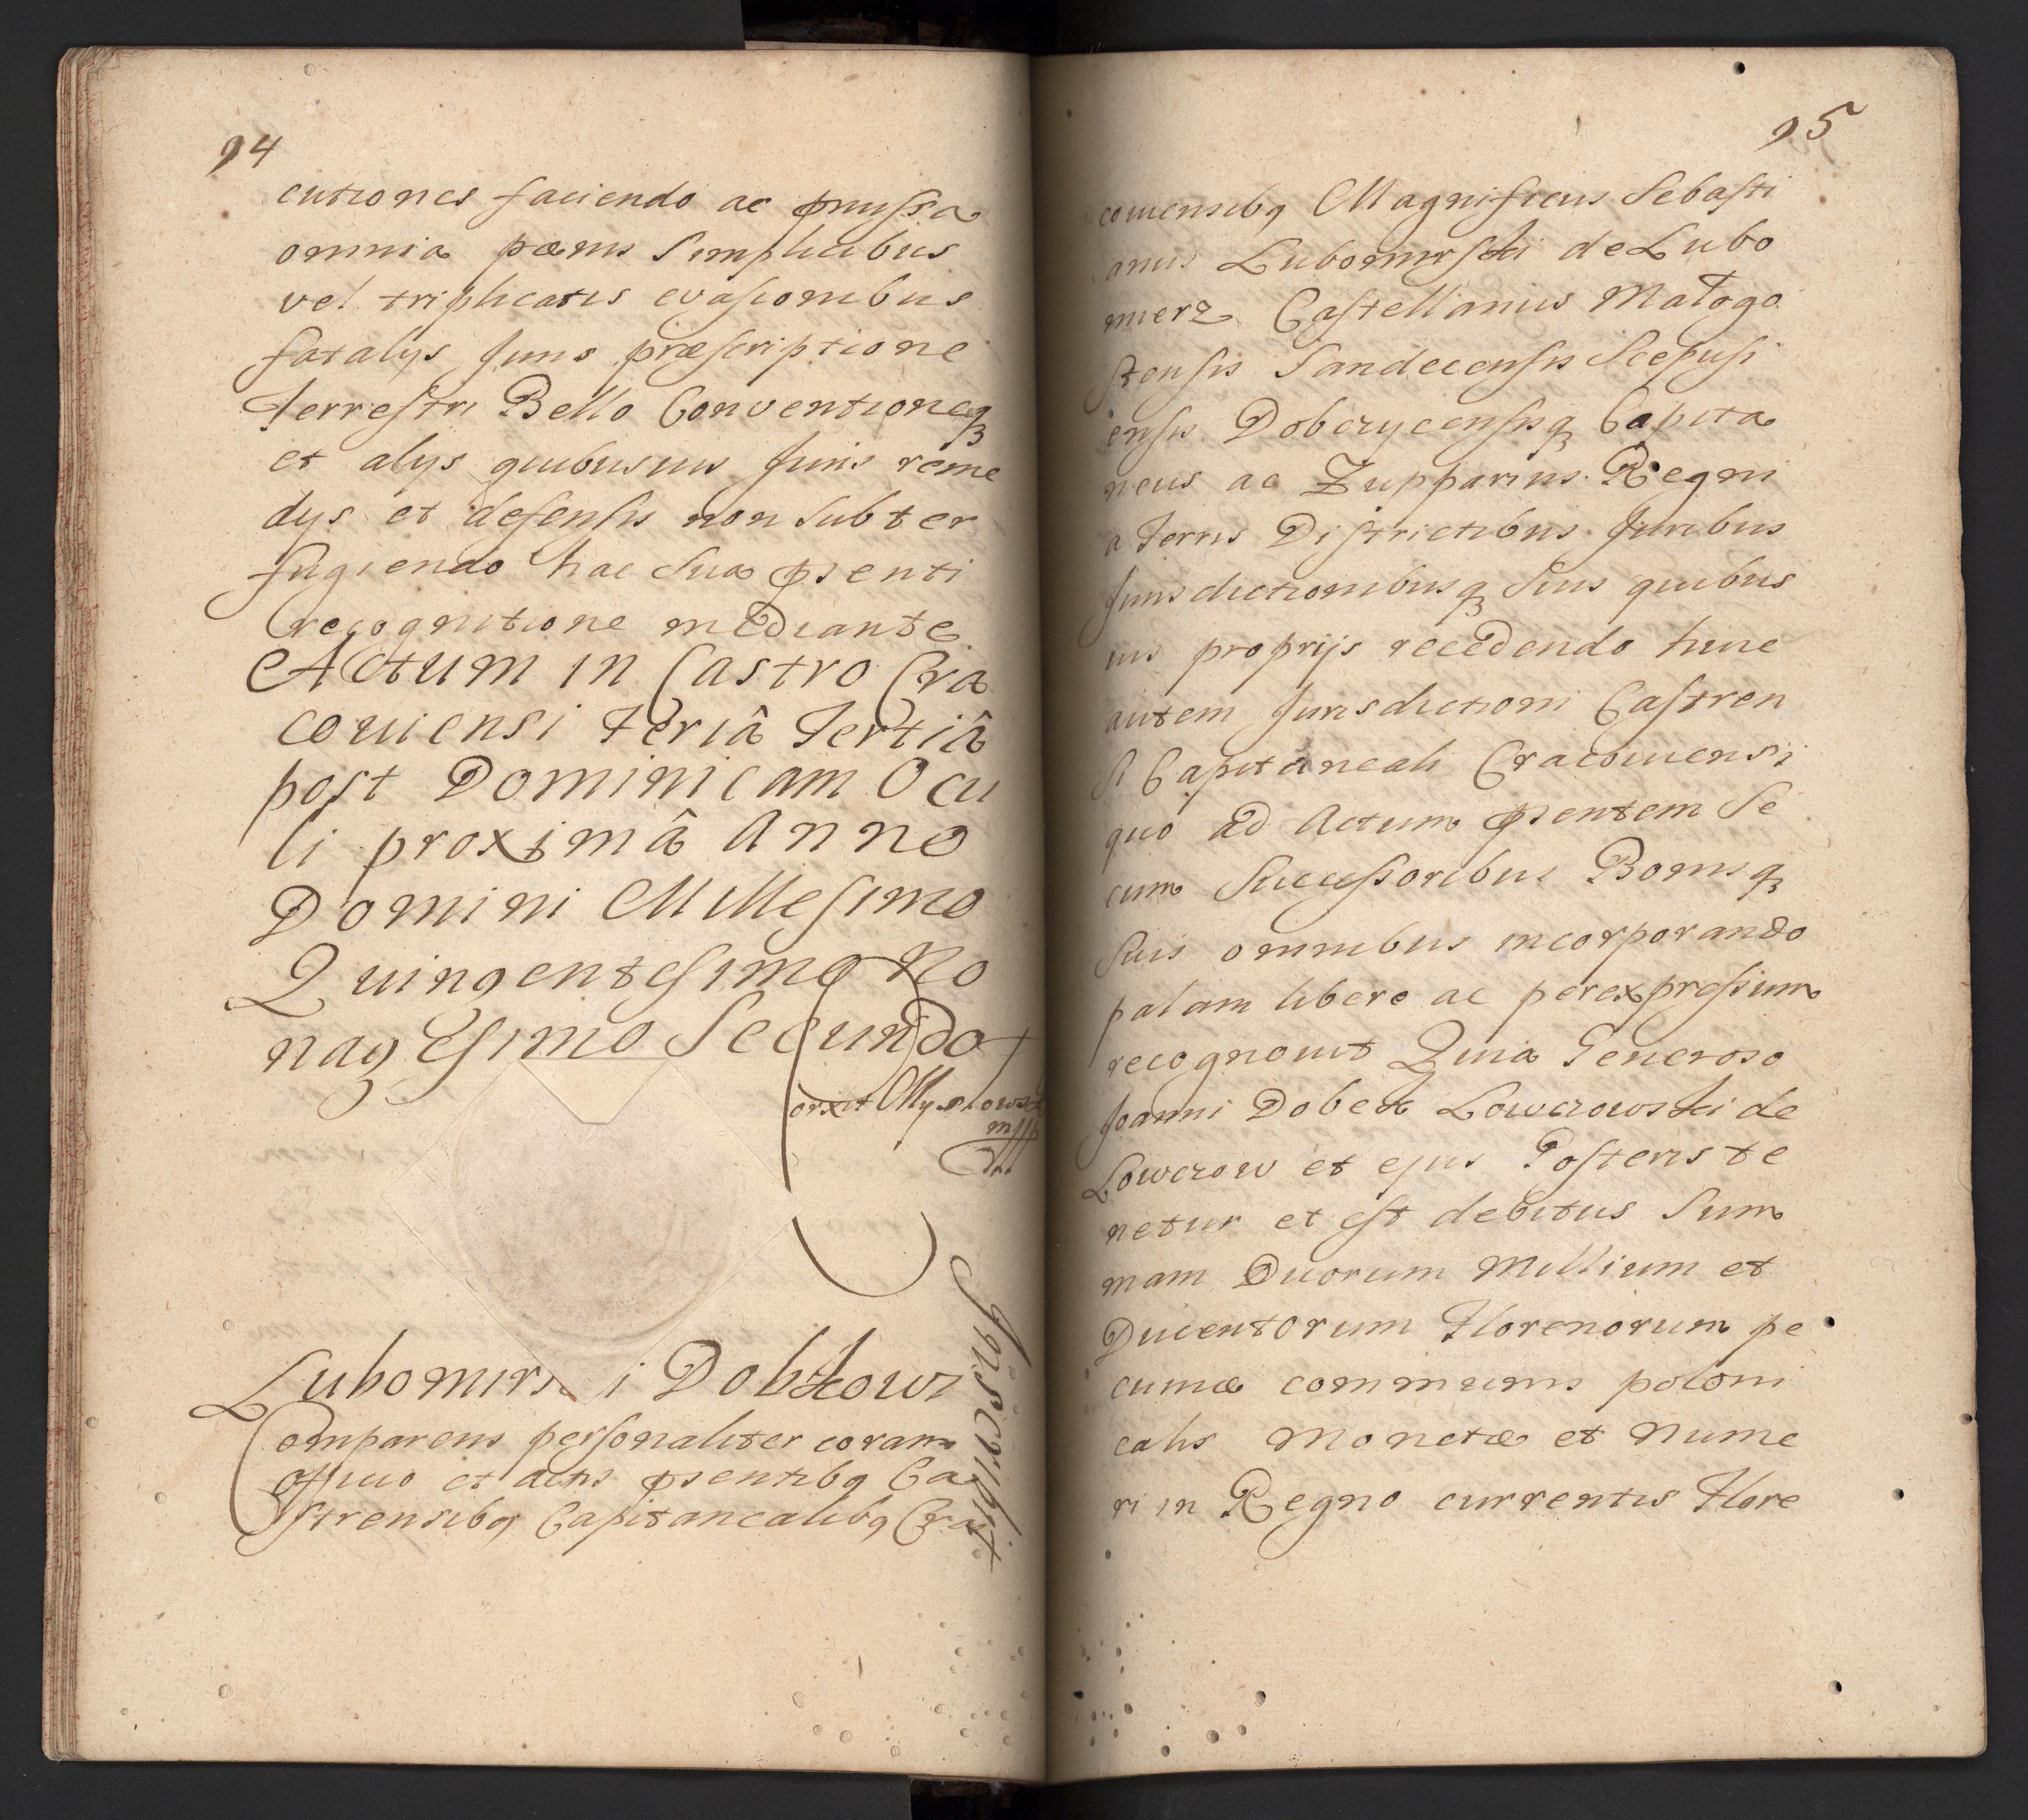 94
cutiones faciendo ac pmissa
omnia pœnis Simplicibus
vel triplicatis evasionibus
fatalys Juris præscriptione
Terrestri Bello Conventioneq
et alys quibusuis Juris reme
dys et defensis non Subter
fugiendo hac Sua psenti
recognitione mediante
Actum in Castro Cra
couiensi Feriâ Tertiâ
post Dominicam Ocu
li proximâ Anno
Domini Millesimo
Quingentesimo No
nagesimo Secundo
Corxit
mpp
Lubomirs i Dobkows
Comparens personaliter coram
officio et actis psentibq Ca
strensibq Capitanealibq Cra
95
couiensibq Magnificus Sebasti
anus Lubomirski de Lubo
mierz Castellanus Małogo
stensis Sandecensis Scepusi
ensis Dobczycensisq Capita
neus ac Zupparius Regni
a Terris Districtibus Juribus
Jurisdictionibusq Suis quibus
uis proprijs recedendo hunc
autem Jurisdictioni Castren
si Capitaneali Cracouiensi
quo ad Actum psentem Se
cum Successoribus Bonisq
Suis omnibus incorporando
palam libere ac per expressum
recognouit Quia Generoso
Joanni Dobek Lowczowski de
Lowczow et ejus Posteris te
netur et est debitus Sum
mam Duorum Millium et
Ducentorum Florenorum pe
cuniæ communis poloni
calis Monetæ et Nume
ri in Regno currentis Flore